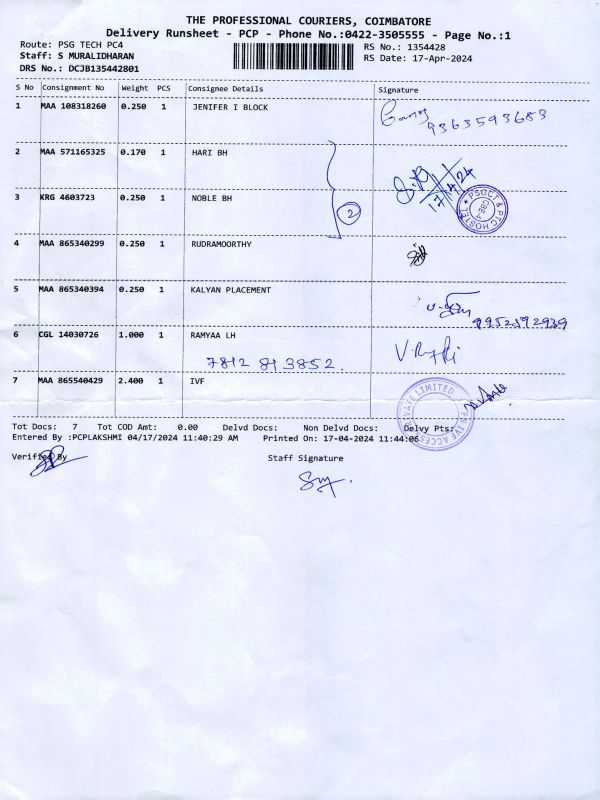 THE PROFESSIONAL COURIERS, COIMBATORE
Delivery Runsheet - PCP - Phone No.:0422-3505555 - Page No.:1
Route: PSG TECH PC4 RS No.: 1354428
Staff: S MURALIDHARAN RS Date: 17-Apr-2024
DRS No.: DCJB135442801
S No Consignment No Weight PCS Consignee Details Signature
1 MAA 108318260 0.250 1 JENIFER I BLOCK
9363593683
2 MAA 571165325 0.170 1 HARI BH
17/4/24
3 KRG 4603723 0.250 1 NOBLE BH
2
PSGCT & PTC HOSTEL
CBE-4
4 MAA 865340299 0.250 1 RUDRAMOORTHY
5 MAA 865340394 0.250 1 KALYAN PLACEMENT
9952592939
6 CGL 14030726 1.000 1 RAMYAA LH
7812 813852.
7 MAA 865540429 2.400 1 IVF
PRIVATE LIMITED
IVF ACCESS
Tot Docs: 7 Tot COD Amt: 0.00 Delvd Docs: Non Delvd Docs: Delvy Pts:
Entered By :PCPLAKSHMI 04/17/2024 11:40:29 AM Printed On: 17-04-2024 11:44:06
Verified By Staff Signature